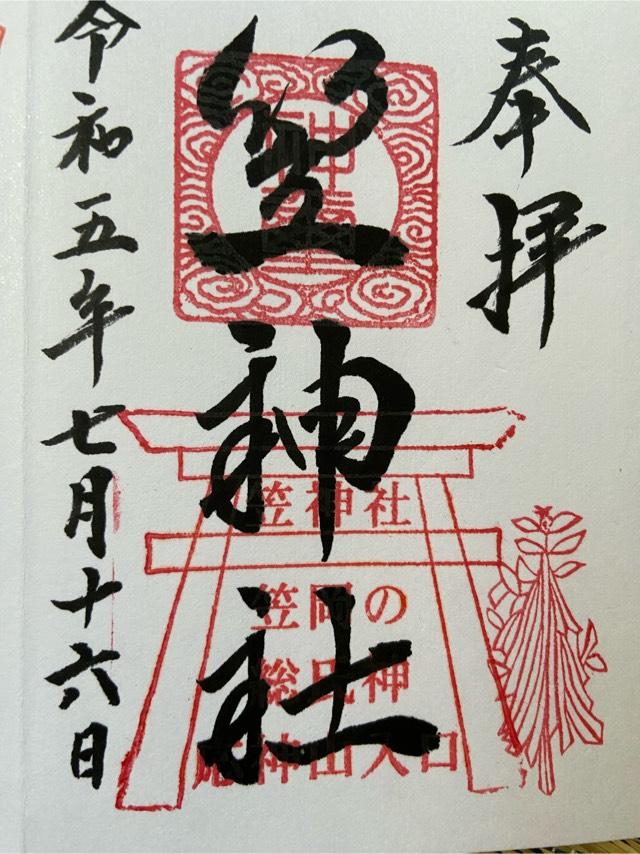 奉拝
笠神社
笠神社
笠岡の
総氏神
応神山入口
令和五年七月十六日